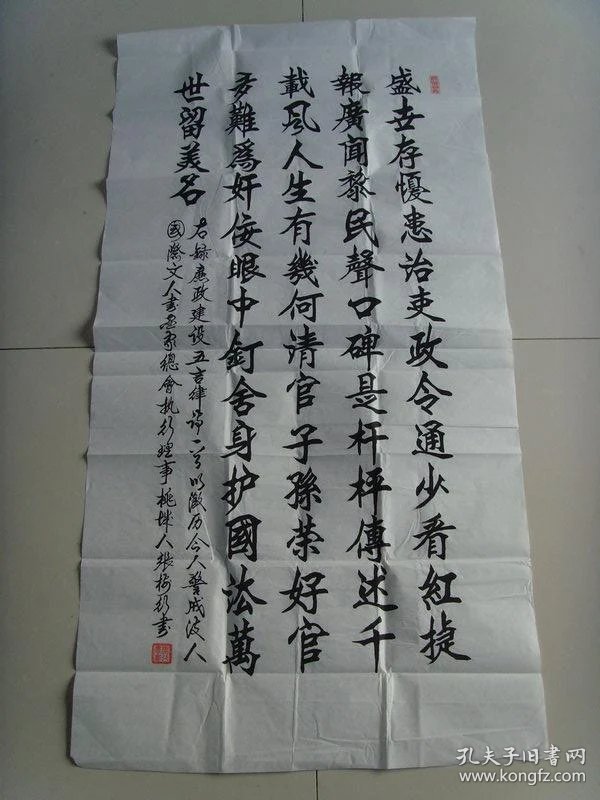 盛世存憂患治吏政令通少看紅捷
報廣闻黎民聲口碑是杆枰傳述千
載風人生有幾何清官子孫荣好官
多難爲奸佞眼中釘舍身护國法萬
世留美名
右録廉政建设五言律诗一首以激历今人警戒后人
國際文人书画家總會执行理事桃城人張
书
孔夫子旧书网
www.kongfz.com